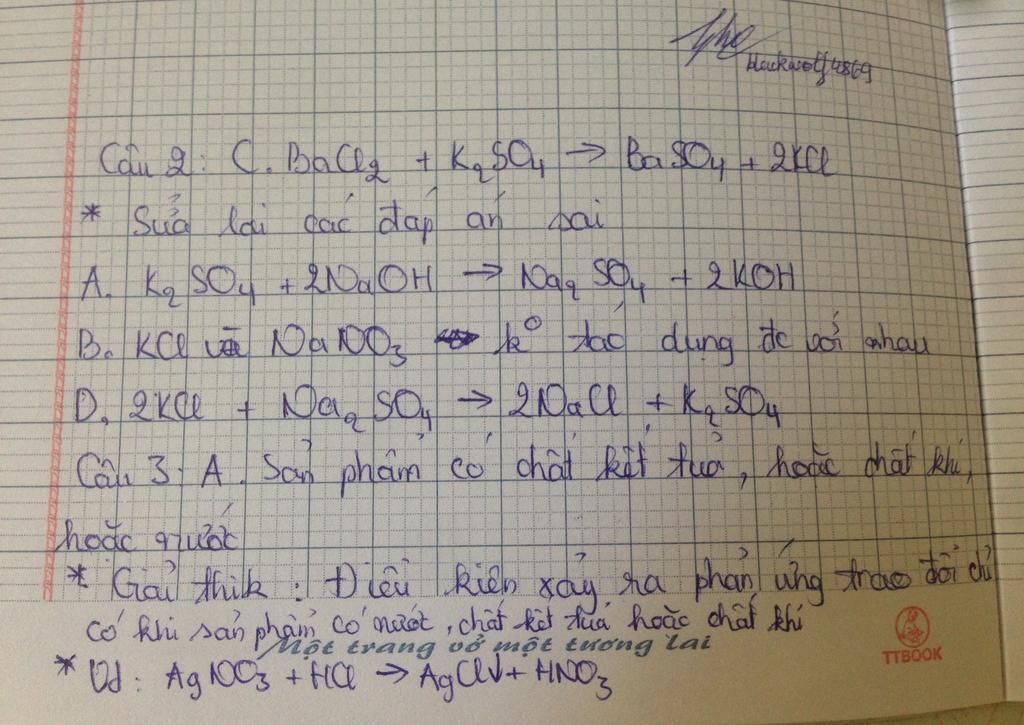 blackwolf4869
Câu 2: C. BaCl2 + K2SO4 → BaSO4 + 2KCl
* Sửa lại các đáp án sai
A. K2SO4 + 2NaOH → Na2SO4 + 2KOH
B. KCl và NaNO3 k° tác dụng đc với nhau
D. 2KCl + Na2SO4 → 2NaCl + K2SO4
Câu 3: A. Sản phẩm có chất kết tủa, hoặc chất khí,
hoặc nước
* Giải thik: Điều kiện xảy ra phản ứng trao đổi chỉ
có khi sản phẩm có nước, chất kết tủa hoặc chất khí
Một trang vở một tương lai
TTBOOK
* Vd: AgNO3 + HCl → AgCl↓ + HNO3